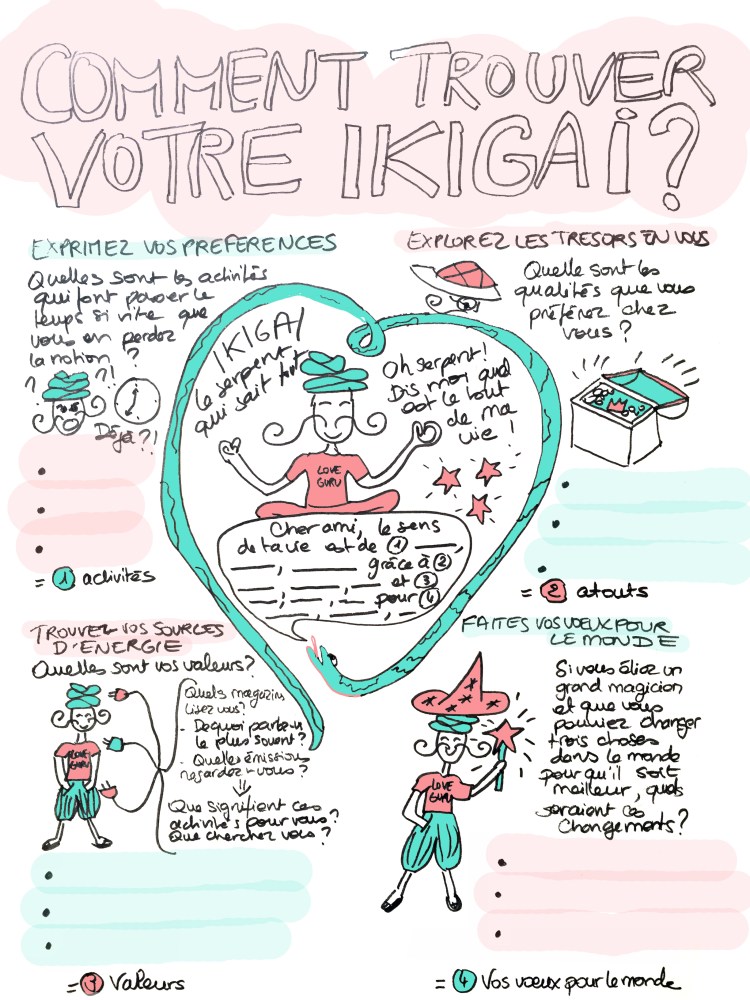 COMMENT TROUVER
VOTRE IKIGAI ?
EXPRIMEZ VOS PREFERENCES
Quelles sont les activités
qui font passer le
temps si vite que
vous en perdez
la notion ?
? ?!
Déjà ?!
•
•
•
= 1 activités
EXPLOREZ LES TRESORS EN VOUS
Quelle sont les
qualités que vous
préférez chez
vous ?
•
•
•
= 2 atouts
IKIGAI
le serpent
qui sait tout
Oh serpent !
Dis moi quel
est le tout
de ma
vie !
LOVE
GURU
Cher ami, le sens
de ta vie est de 1 ___,
___, ___ grâce à 2
___, ___, ___ et 3
___, ___, ___ pour 4
___ ___ ___
TROUVEZ VOS SOURCES
D'ENERGIE
Quelles sont vos valeurs ?
Quels magazins
lisez vous ?
- De quoi parlez-vs
le plus souvent ?
- Quelles émissions
regardez-vous ?
Que signifient ces
activités pour vous ?
Que cherchez vous ?
LOVE
GURU
•
•
•
= 3 Valeurs
FAITES VOS VOEUX POUR
LE MONDE
Si vous étiez un
grand magicien
et que vous
pouviez changer
trois choses
dans le monde
pour qu'il soit
meilleur, quels
seraient ces
changements ?
LOVE
GURU
•
•
•
= 4 Vos vœux pour le monde